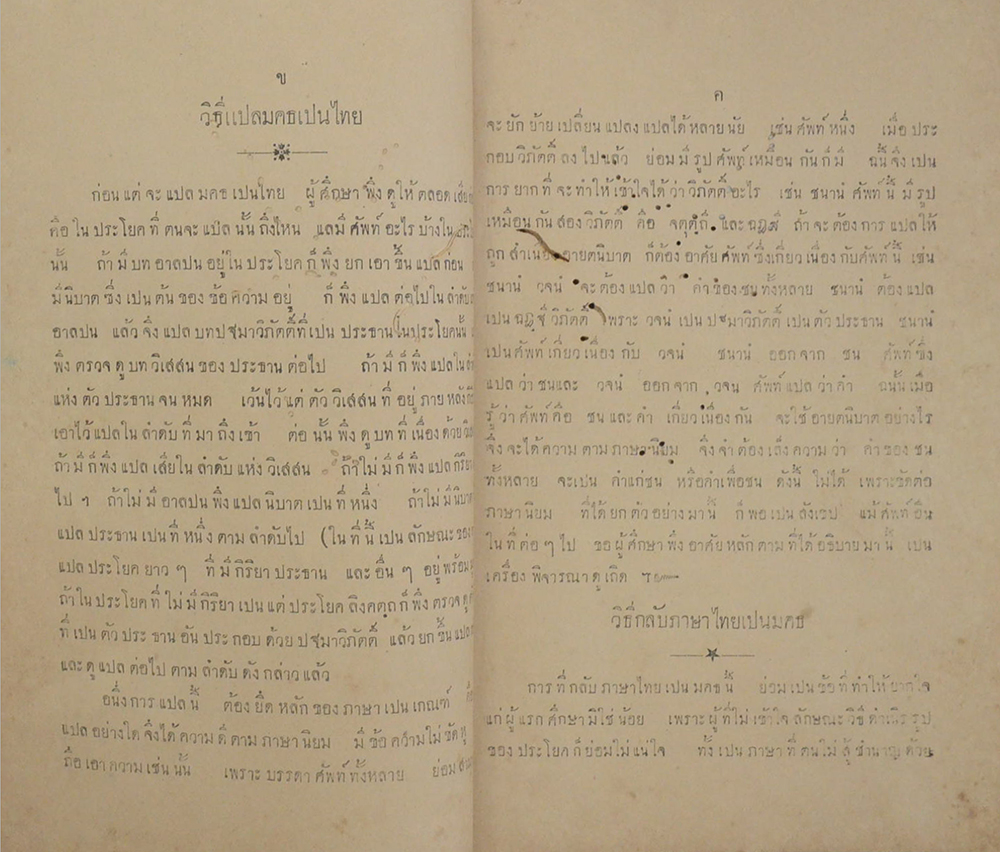 ข
วิธีแปลมคธเปนไทย
ก่อน แต่ จะ แปล มคธ เปนไทย ผู้ ศึกษา พึง ดูให้ ตลอด เสีย
คือ ใน ประโยค ที่ ตนจะ แปล นั้น ถึงไหน แลมี ศัพท์ อะไร บ้างใน
นั้น ถ้า มี บท อาลปน อยู่ใน ประโยค ก็ พึง ยก เอา ขึ้น แปล ก่อน
มี นิบาต ซึ่ง เปน ต้น ของ ข้อ ความ อยู่ ก็ พึง แปล ต่อไปใน ลำดับ
อาลปน แล้ว จึง แปล บทปฐมาวิภัตติ์ที่เปน ประธานในประโยคนั้น
พึง ตรวจ ดู บท วิเสสน ของ ประธาน ต่อไป ถ้า มี ก็ พึง แปลใน
แห่ง ตัว ประธาน จน หมด เว้นไว้ แต่ ตัว วิเสสน ที่ อยู่ ภาย หลัง
เอาไว้ แปลใน ลำดับ ที่ มา ถึง เข้า ต่อ นั้น พึง ดู บท ที่ เนื่อง ด้วย
ถ้า มี ก็ พึง แปล เสียใน ลำดับ แห่ง วิเสสน ถ้าไม่ มี ก็ พึง แปล กิริยา
ไป ๆ ถ้าไม่ มี อาลปน พึง แปล นิบาต เปน ที่ หนึ่ง ถ้าไม่ มี นิบาต
แปล ประธาน เปน ที่ หนึ่ง ตาม ลำดับไป (ใน ที่ นี้ เปน ลักษณะ ของ
แปล ประโยค ยาว ๆ ที่ มี กิริยา ประธาน และ อื่น ๆ อยู่ พร้อม
ถ้าใน ประโยค ที่ ไม่ มี กิริยา เปน แต่ ประโยค ลิงคตฺถ ก็ พึง ตรวจ ดู
ที่ เปน ตัว ประธาน อัน ประกอบ ด้วย ปฐมาวิภัตติ์ แล้ว ยก ขึ้น แปล
และ ดู แปล ต่อไป ตาม ลำดับ ดัง กล่าว แล้ว
อนึ่ง การ แปล นี้ ต้อง ยึด หลัก ของ ภาษา เปน เกณฑ์
แปล อย่างใด จึงได้ ความ ดี ตาม ภาษา นิยม มี ข้อ ความไม่ ชัด
ถือ เอา ความ เช่น นั้น เพราะ บรรดา ศัพท์ ทั้งหลาย ย่อม
ค
จะ ยัก ย้าย เปลี่ยน แปลง แปลได้ หลาย นัย เช่น ศัพท์ หนึ่ง เมื่อ ประ
กอบ วิภัตติ์ ลงไปแล้ว ย่อม มี รูป ศัพท์ เหมือน กัน ก็ มี ฉนี้ จึง เปน
การ ยาก ที่ จะ ทำให้ เข้าใจได้ ว่า วิภัตติ์ อะไร เช่น ชนานํ ศัพท์ นี้ มี รูป
เหมือน กัน สอง วิภัตติ์ คือ จตุตฺถี และ ฉฏฺฐี ถ้า จะ ต้อง การ แปล ให้
ถูก สำเนียง อายตนิบาต ก็ต้อง อาศัย ศัพท์ ซึ่งเกี่ยว เนื่อง กับศัพท์ นี้ เช่น
ชนานํ วจนํ จะ ต้อง แปล ว่า คำ ของ ชน ทั้งหลาย ชนานํ ต้อง แปล
เปน ฉฏฺฐี วิภัตติ์ เพราะ วจนํ เปน ปฐมาวิภัตติ์ เปน ตัว ประธาน ชนานํ
เปนศัพท์ เกี่ยว เนื่อง กับ วจนํ ชนานํ ออก จาก ชน ศัพท์ ซึ่ง
แปล ว่า ชนและ วจนํ ออกจาก วจน ศัพท์ แปล ว่า คำ ฉนั้น เมื่อ
รู้ ว่า ศัพท์ คือ ชน และ คำ เกี่ยว เนื่อง กัน จะใช้ อายตนิบาต อย่างไร
จึง จะได้ ความ ตาม ภาษา นิยม จึง จำ ต้อง เล็ง ความ ว่า คำ ของ ชน
ทั้งหลาย จะเปน คำแก่ชน หรือคำเพื่อชน ดังนี้ ไม่ได้ เพราะขัดต่อ
ภาษา นิยม ที่ได้ ยก ตัว อย่าง มา นี้ ก็ พอ เปน สังเขป แม้ ศัพท์ อื่น
ใน ที่ ต่อ ๆ ไป ขอ ผู้ ศึกษา พึง อาศัย หลัก ตาม ที่ได้ อธิบาย มา นี้ เปน
เครื่อง พิจารณา ดู เถิด
วิธีกลับภาษาไทยเปนมคธ
การ ที่ กลับ ภาษาไทย เปน มคธ นี้ ย่อม เปน ข้อ ที่ ทำให้ ยากใจ
แก่ ผู้ แรก ศึกษา มิใช่ น้อย เพราะ ผู้ ที่ไม่ เข้าใจ ลักษณะ วิธี ดำเนิร รูป
ของ ประโยค ก็ ย่อมไม่ แน่ใจ ทั้ง เปน ภาษา ที่ ตนไม่ สู้ ชำนาญ ด้วย